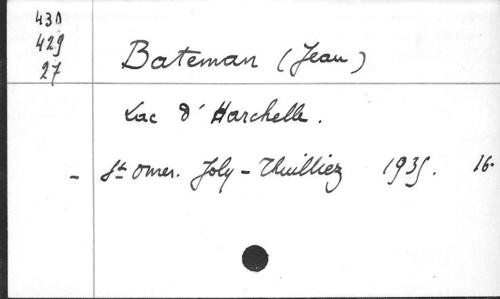 43D
429
27
Bateman (Jean)
Lac d' Harchelle.
- St Omer. Joly - Thuilliez 1935. 16.